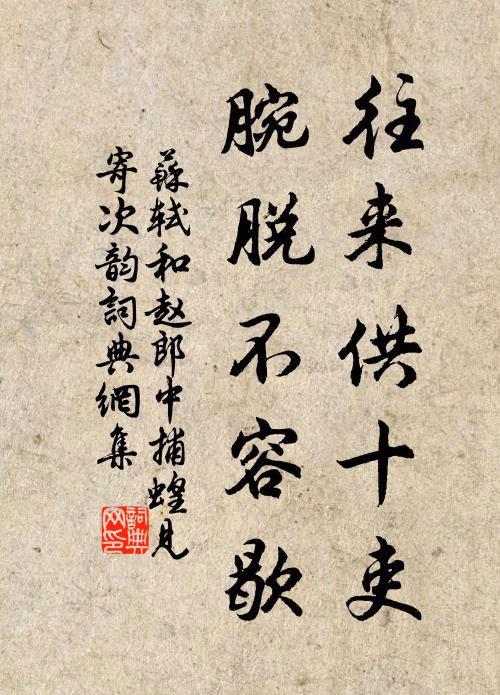 往来供十吏
腕脱不容歇
蘇軾和赵郎中捕蝗見
寄次韵詞典網集
詞典
网印